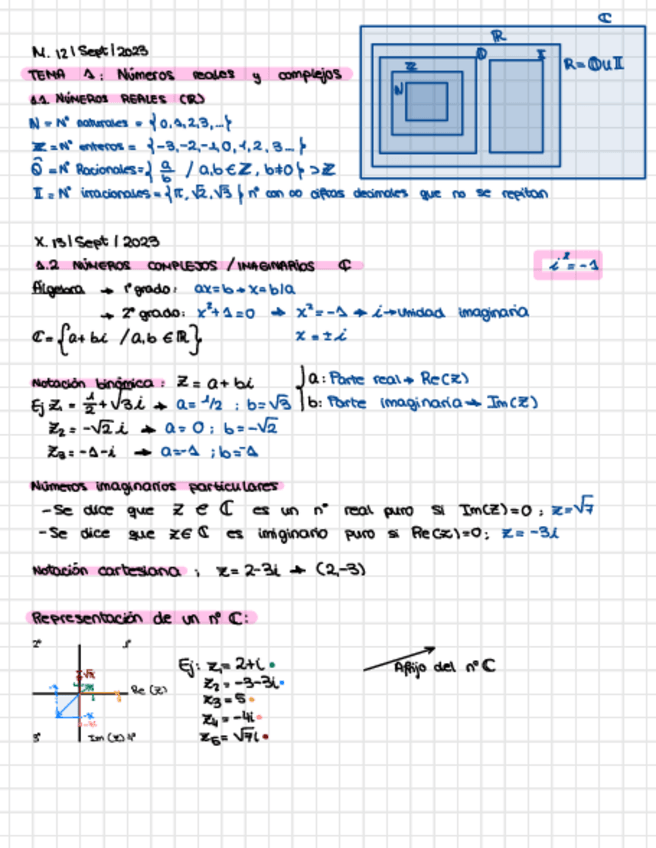 M. 12 | Sept | 2023
TEMA 1: Números reales y complejos
1.1. NÚMEROS REALES (R)
N = Nº naturales = {0,1,2,3,...}
Z = Nº enteros = {-3,-2,-1,0,1,2,3...}
Q = Nº Racionales = { a/b / a,b ∈ Z, b≠0} > Z
I = Nº irracionales = {π, √2, √3} nº con ∞ cifras decimales que no se repitan
C
R
Q
I
Z
N
R = Q ∪ I
X. 13 | Sept | 2023
1.2 NÚMEROS COMPLEJOS / IMAGINARIOS C
i² = -1
Álgebra → 1º grado: ax=b → x=b/a
→ 2º grado: x²+1=0 → x²=-1 → i → unidad imaginaria
C = {a+bi / a,b ∈ R}
x = ± i
Notación binómica: Z = a + bi
a: Parte real → Re(Z)
b: Parte imaginaria → Im(Z)
Ej Z₁ = 1/2 + √3 i → a = 1/2 ; b = √3
Z₂ = -√2 i → a = 0 ; b = -√2
Z₃ = -1-i → a=-1 ; b=-1
Números imaginarios particulares
- Se dice que Z ∈ C es un nº real puro si Im(Z)=0 ; Z=√7
- Se dice que Z ∈ C es imiginario puro si Re(Z)=0; Z = -3i
Notación cartesiana : Z = 2-3i → (2,-3)
Representación de un nº C:
2º
1º
Re (Z)
3º
Im (Z) 4º
Ej: Z₁ = 2+i
Z₂ = -3-3i
Z₃ = 5
Z₄ = -4i
Z₅ = √7i
Afijo del nº C